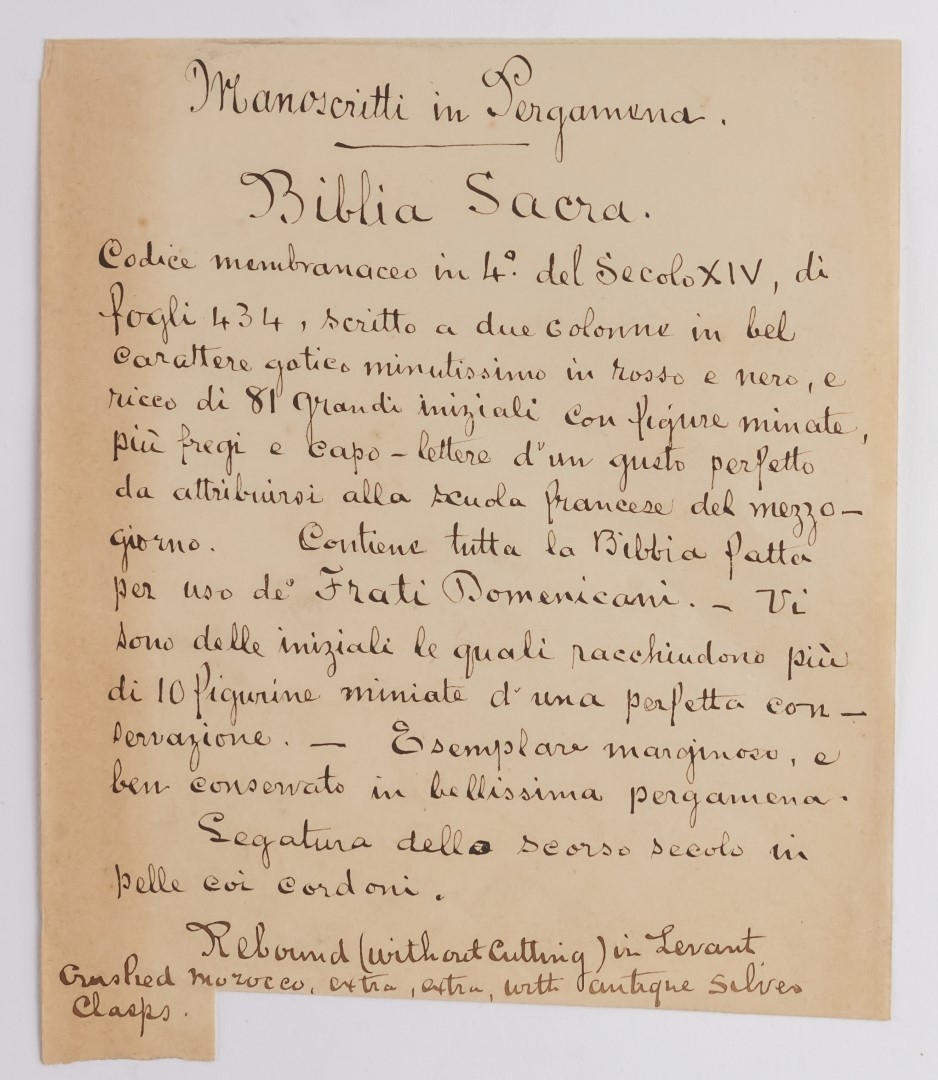 Manoscritti in Pergamena.
Biblia Sacra.
Codice membranaceo in 4º. del Secolo XIV, di
fogli 434, scritto a due colonne in bel
carattere gotico minutissimo in rosso e nero, e
ricco di 81 grandi iniziali con figure minate,
più fregi e capo-lettere d'un gusto perfetto
da attribuirsi alla scuola francese del mezzo-
giorno. Contiene tutta la Bibbia fatta
per uso de' Frati Domenicani. - Vi
sono delle iniziali le quali racchiudono più
di 10 figurine miniate d'una perfetta con-
servazione. — Esemplare marginoso, e
ben conservato in bellissima pergamena.
Legatura dello scorso secolo in
pelle coi cordoni.
Rebound (without Cutting) in Levant
Crushed Morocco, extra, extra, with antique Silver
Clasps.